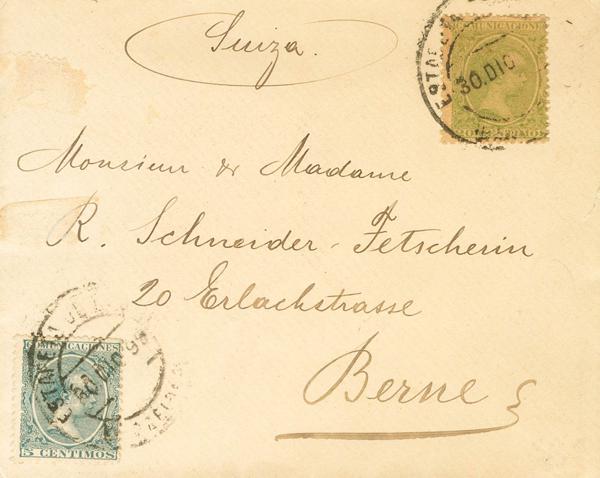 Suiza.
COMUNICACIONES
30.DIC
Monsieur & Madame
R. Schneider-Fetscherin
20 Erlachstrasse
Berne
COMUNICACIONES
5 CENTIMOS